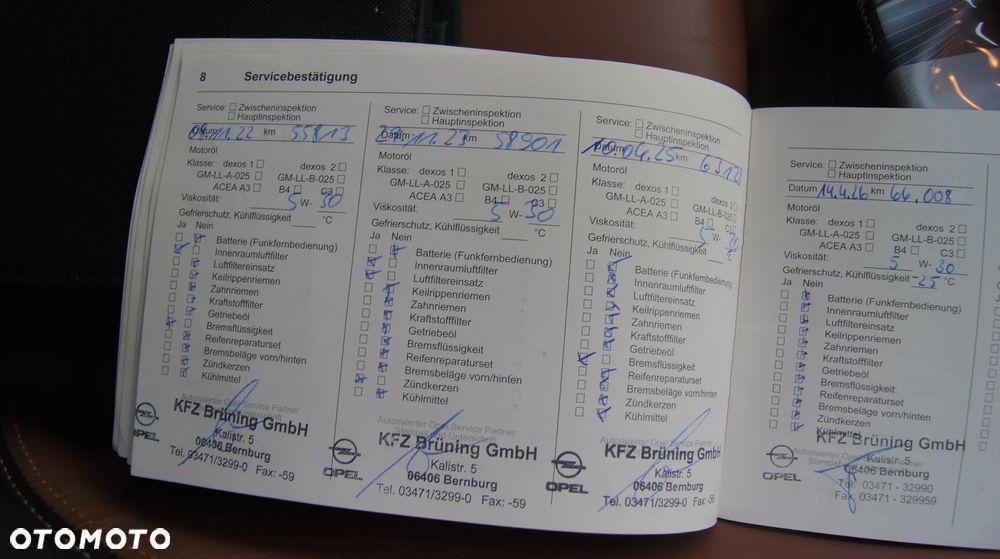 8 Servicebestätigung
Service: Zwischeninspektion
Hauptinspektion
Datum 09.11.22 km 55813
Motoröl
Klasse: dexos 1 dexos 2
GM-LL-A-025 GM-LL-B-025
ACEA A3 B4 C3
Viskosität: 5 W-30
Gefrierschutz, Kühlflüssigkeit °C
Ja Nein
Batterie (Funkfernbedienung)
Innenraumluftfilter
Luftfiltereinsatz
Keilrippenriemen
Zahnriemen
Kraftstofffilter
Getriebeöl
Bremsflüssigkeit
Reifenreparaturset
Bremsbeläge vorn/hinten
Zündkerzen
Kühlmittel
Autorisierter Opel Service Partner
KFZ Brüning GmbH
Kalistr. 5
06406 Bernburg
Tel. 03471/3299-0 Fax: -59
OPEL
Service: Zwischeninspektion
Hauptinspektion
Datum .11.23 km 58901
Motoröl
Klasse: dexos 1 dexos 2
GM-LL-A-025 GM-LL-B-025
ACEA A3 B4 C3
Viskosität: 5 W-30
Gefrierschutz, Kühlflüssigkeit °C
Ja Nein
Batterie (Funkfernbedienung)
Innenraumluftfilter
Luftfiltereinsatz
Keilrippenriemen
Zahnriemen
Kraftstofffilter
Getriebeöl
Bremsflüssigkeit
Reifenreparaturset
Bremsbeläge vorn/hinten
Zündkerzen
Kühlmittel
Autorisierter Opel Service Partner
KFZ Brüning GmbH
Kalistr. 5
06406 Bernburg
Tel. 03471/3299-0 Fax: -59
OPEL
Service: Zwischeninspektion
Hauptinspektion
Datum 10.04.25 km
Motoröl
Klasse: dexos 1 dexos 2
GM-LL-A-025 GM-LL-B-025
ACEA A3 B4 C3
Viskosität: 5 W-30
Gefrierschutz, Kühlflüssigkeit °C
Ja Nein
Batterie (Funkfernbedienung)
Innenraumluftfilter
Luftfiltereinsatz
Keilrippenriemen
Zahnriemen
Kraftstofffilter
Getriebeöl
Bremsflüssigkeit
Reifenreparaturset
Bremsbeläge vorn/hinten
Zündkerzen
Kühlmittel
Autorisierter Opel Service Partner
KFZ Brüning GmbH
Kalistr. 5
06406 Bernburg
Tel. 03471/3299-0 Fax: -59
OPEL
Service: Zwischeninspektion
Hauptinspektion
Datum 14.4.26 km 66.008
Motoröl
Klasse: dexos 1 dexos 2
GM-LL-A-025 GM-LL-B-025
ACEA A3 B4 C3
Viskosität: 5 W-30
Gefrierschutz, Kühlflüssigkeit -25 °C
Ja Nein
Batterie (Funkfernbedienung)
Innenraumluftfilter
Luftfiltereinsatz
Keilrippenriemen
Zahnriemen
Kraftstofffilter
Getriebeöl
Bremsflüssigkeit
Reifenreparaturset
Bremsbeläge vorn/hinten
Zündkerzen
Kühlmittel
KFZ Brüning GmbH
Kalistr. 5
06406 Bernburg
Tel. 03471 - 32990
Fax. 03471 - 329959
OPEL
OTOMOTO